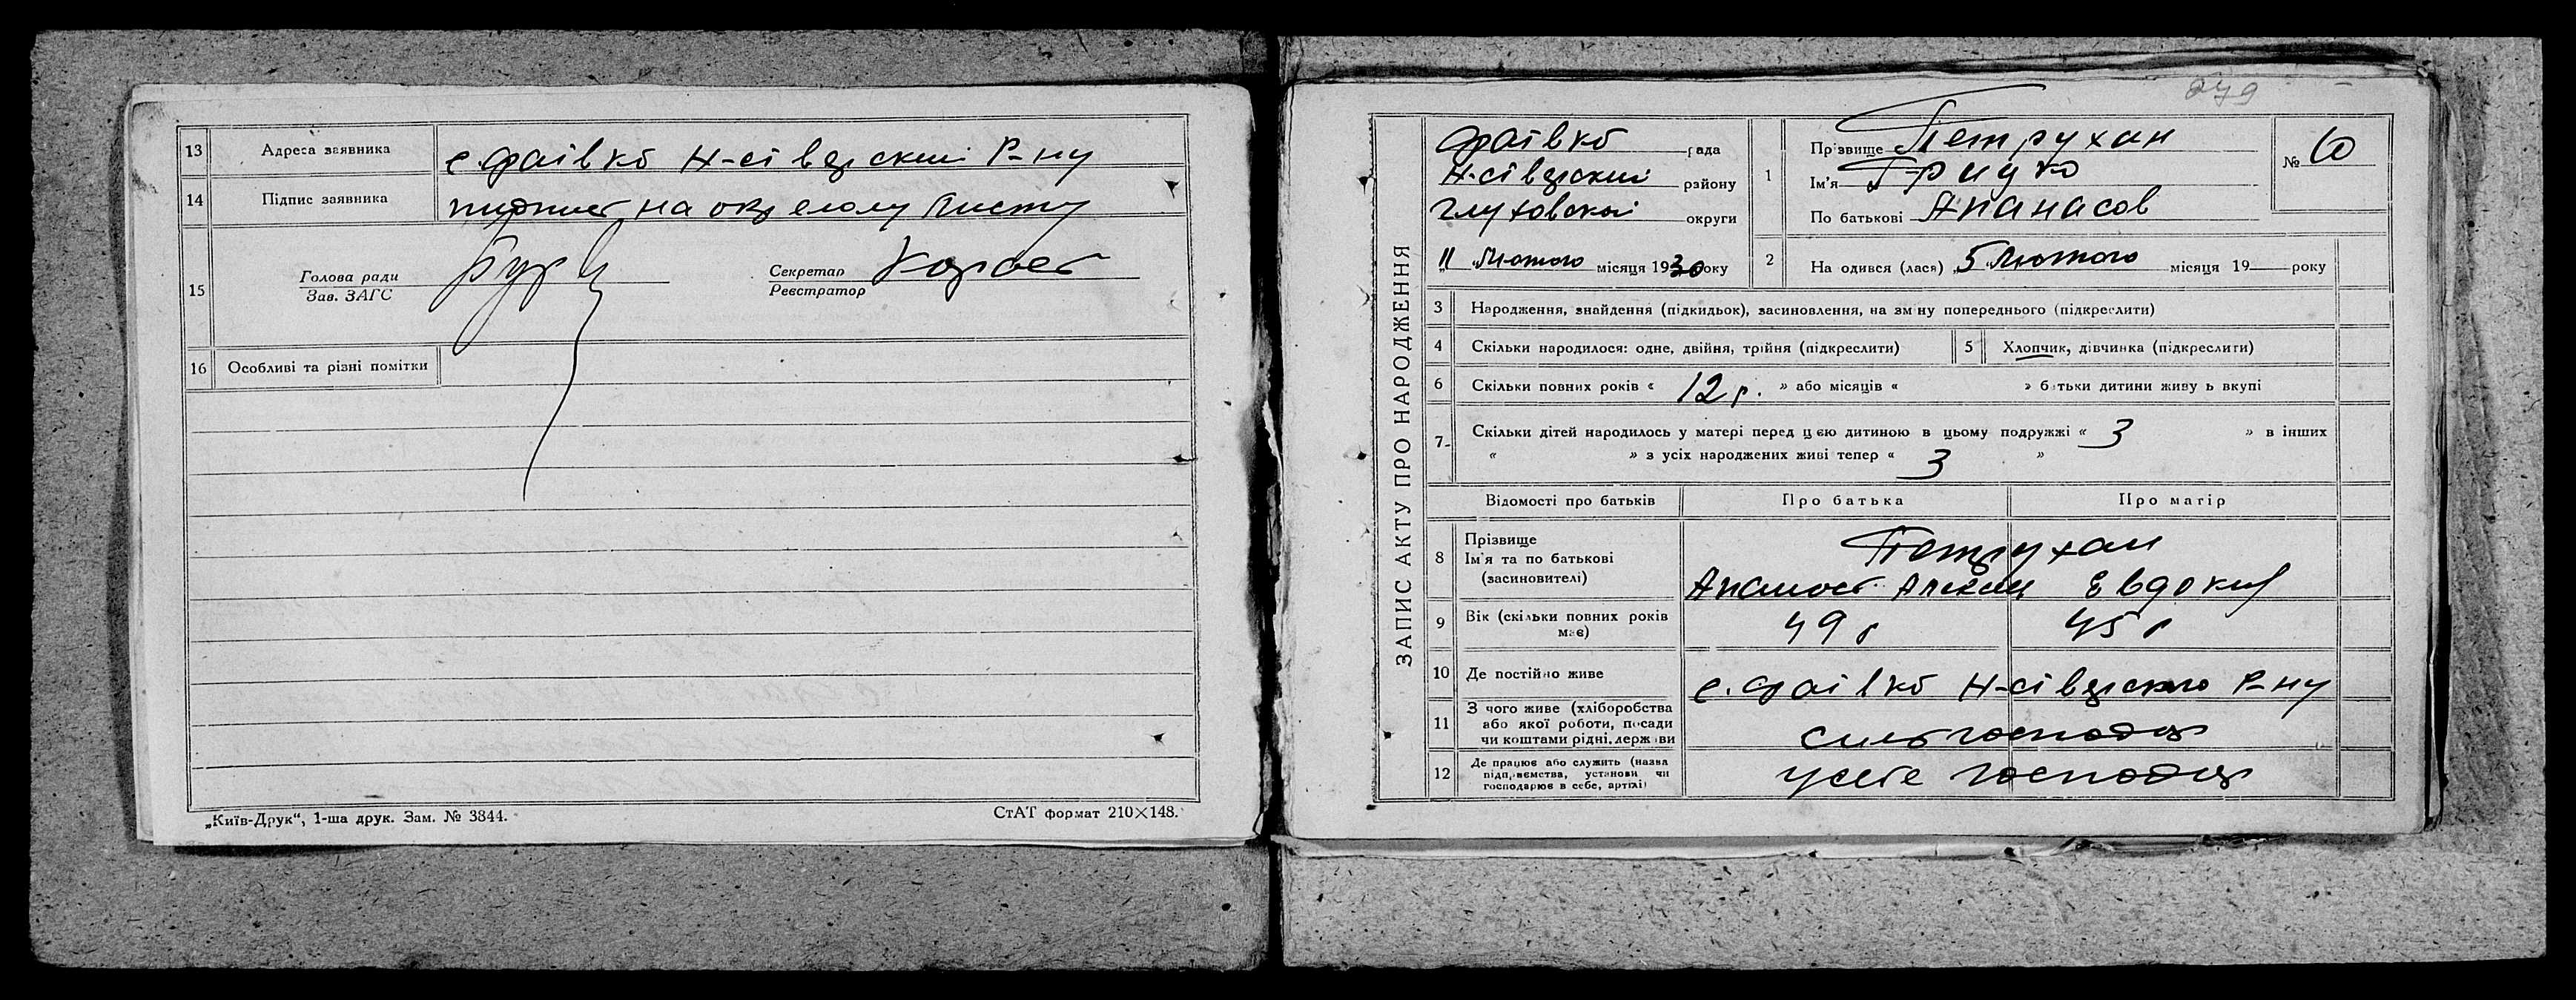 13 Адреса заявника с. Фаівка Н-сіверский Р-ну
14 Підпис заявника на окремому листу
15 Голова ради
Зав. ЗАГС
Секретар
Реєстратор
16 Особливі та різні помітки
„Київ-Друк“, 1-ша друк. Зам. № 3844.
СтАТ формат 210×148.
279
ЗАПИС АКТУ ПРО НАРОДЖЕННЯ
Фаівка рада
Н-сіверский району
Глуховской округи
„11“ Лютого місяця 1930 року
1 Прізвище Петрухан
Ім'я Грицко
По батькові Апанасов
№ 10
2 На одився (лася) „5“ Лютого місяця 19 року
3 Народження, знайдення (підкидьок), засиновлення, на зм ну попереднього (підкреслити)
4 Скільки народилося: одне, двійня, трійня (підкреслити)
5 Хлопчик, дівчинка (підкреслити)
6 Скільки повних років « 12 р. » або місяців « » батьки дитини живу ь вкупі
7 Скільки дітей народилось у матері перед цією дитиною в цьому подружжі « 3 » в інших
« » з усіх народжених живі тепер « 3 »
Відомості про батьків Про батька Про матір
8 Прізвище
Ім'я та по батькові
(засиновителі)
Петрухан
Апанас Евдокия
9 Вік (скільки повних років
має)
49 р 45 р
10 Де постійно живе с. Фаівка Н-сіверского Р-ну
11 З чого живе (хліборобства
або якої роботи, посади
чи коштами рідні, держави
12 Де працює або служить (назва
підприємства, установи чи
господарює в себе, артілі)